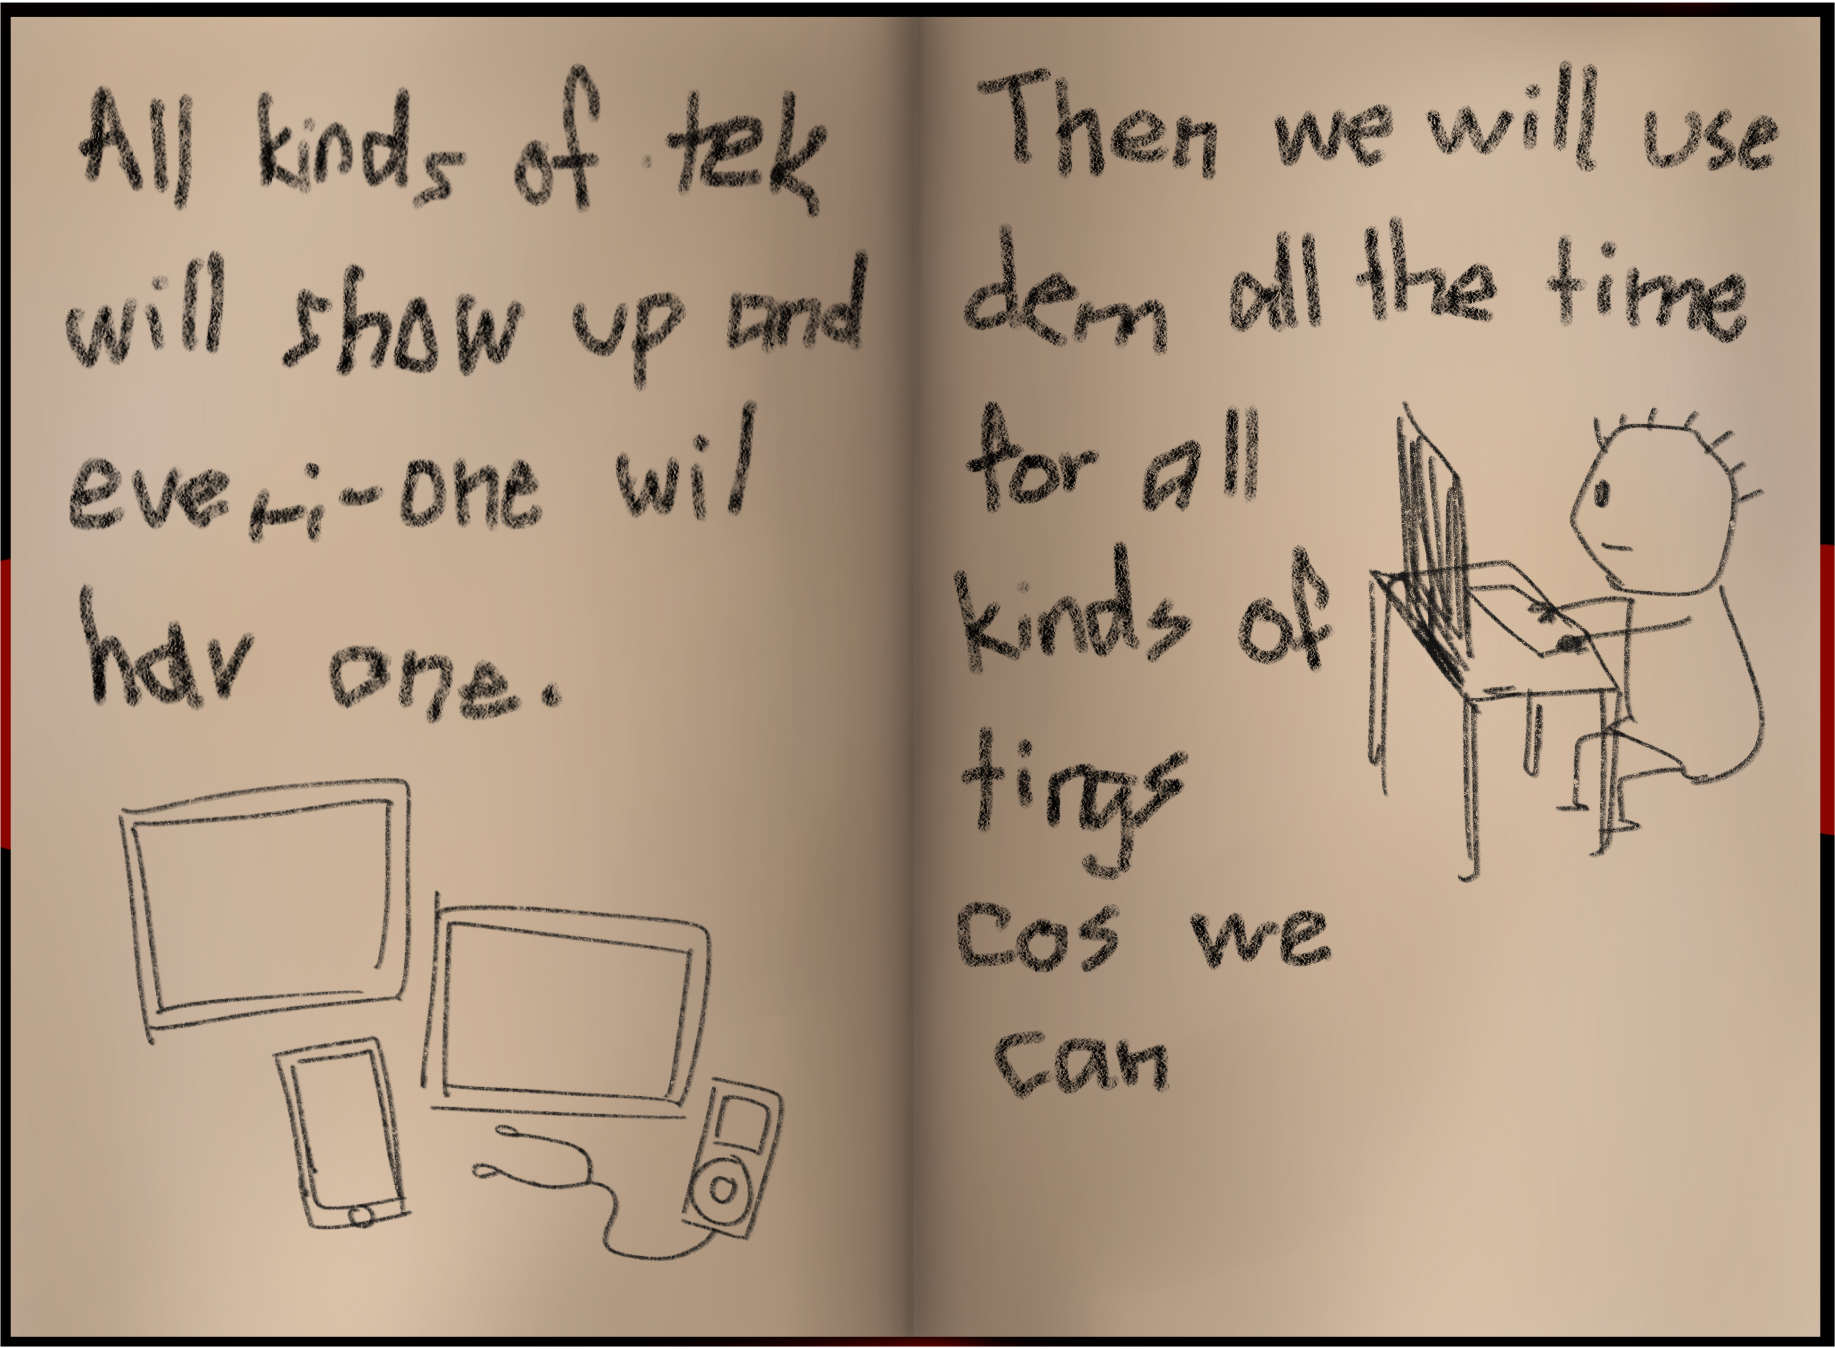 All kinds of tek
will show up and
everi-one wil
hav one.
Then we will use
dem all the time
for all
kinds of
tings
cos we
can